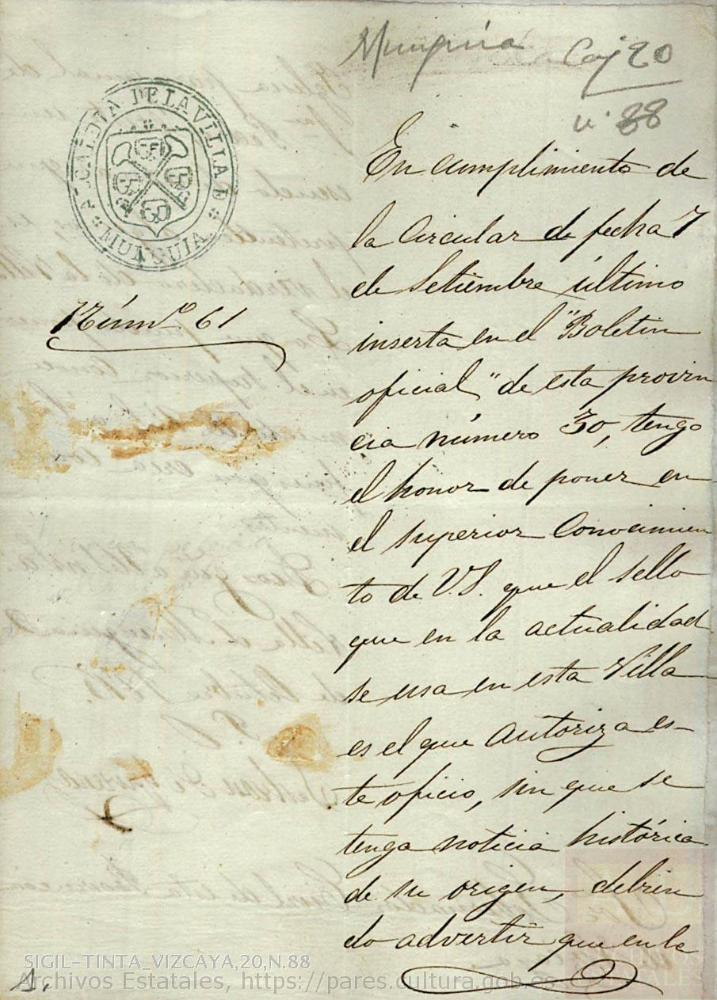 Munguia Caj 20
n. 88
ALCALDIA DE LA VILLA D
MUNGUIA
Núm.º 61
En cumplimiento de
la Circular de fecha 7
de Setiembre último
inserta en el "Boletin
oficial" de esta provin
cia número 30, tengo
el honor de poner en
el superior Conocimien
to de V.S. que el sello
que en la actualidad
se usa en esta Villa
es el que Autoriza es-
te oficio, sin que se
tenga noticia histórica
de su origen, debien
do advertir que en la
SIGIL-TINTA_VIZCAYA,20,N.88
Archivos Estatales, https://pares.cultura.gob.es